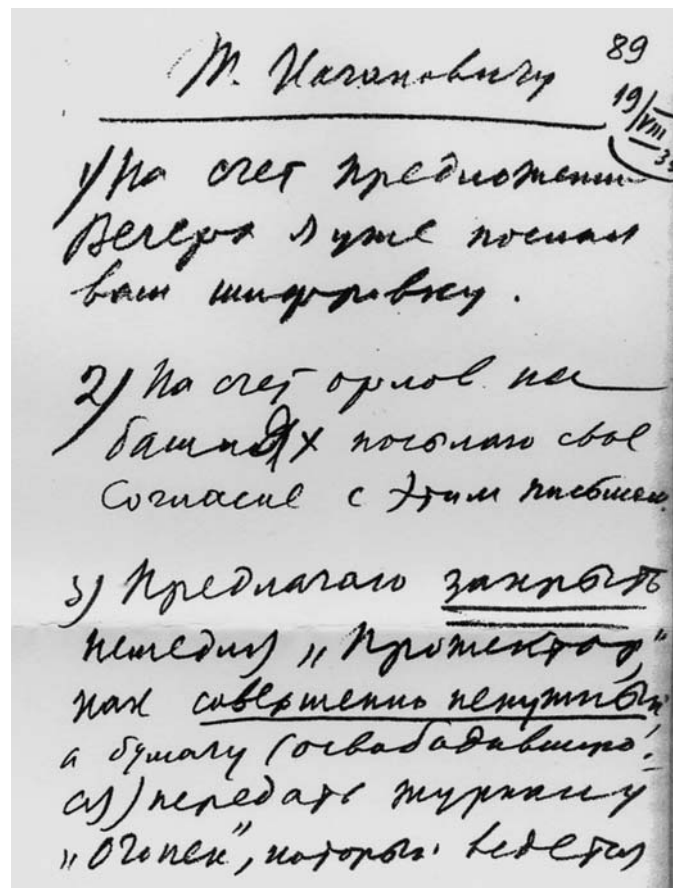 89
Т. Кагановичу
19/VIII
1) На счет предложения
Вечера я уже послал
вам шифровку.
2) На счет орлов на
башнях посылаю свое
согласие с этим письмом.
3) Предлагаю закрыть
немедля „Прожектор,"
как совершенно ненужный,
а бумагу (освободившую-
ся) передать журналу
„Огонек", который ведется